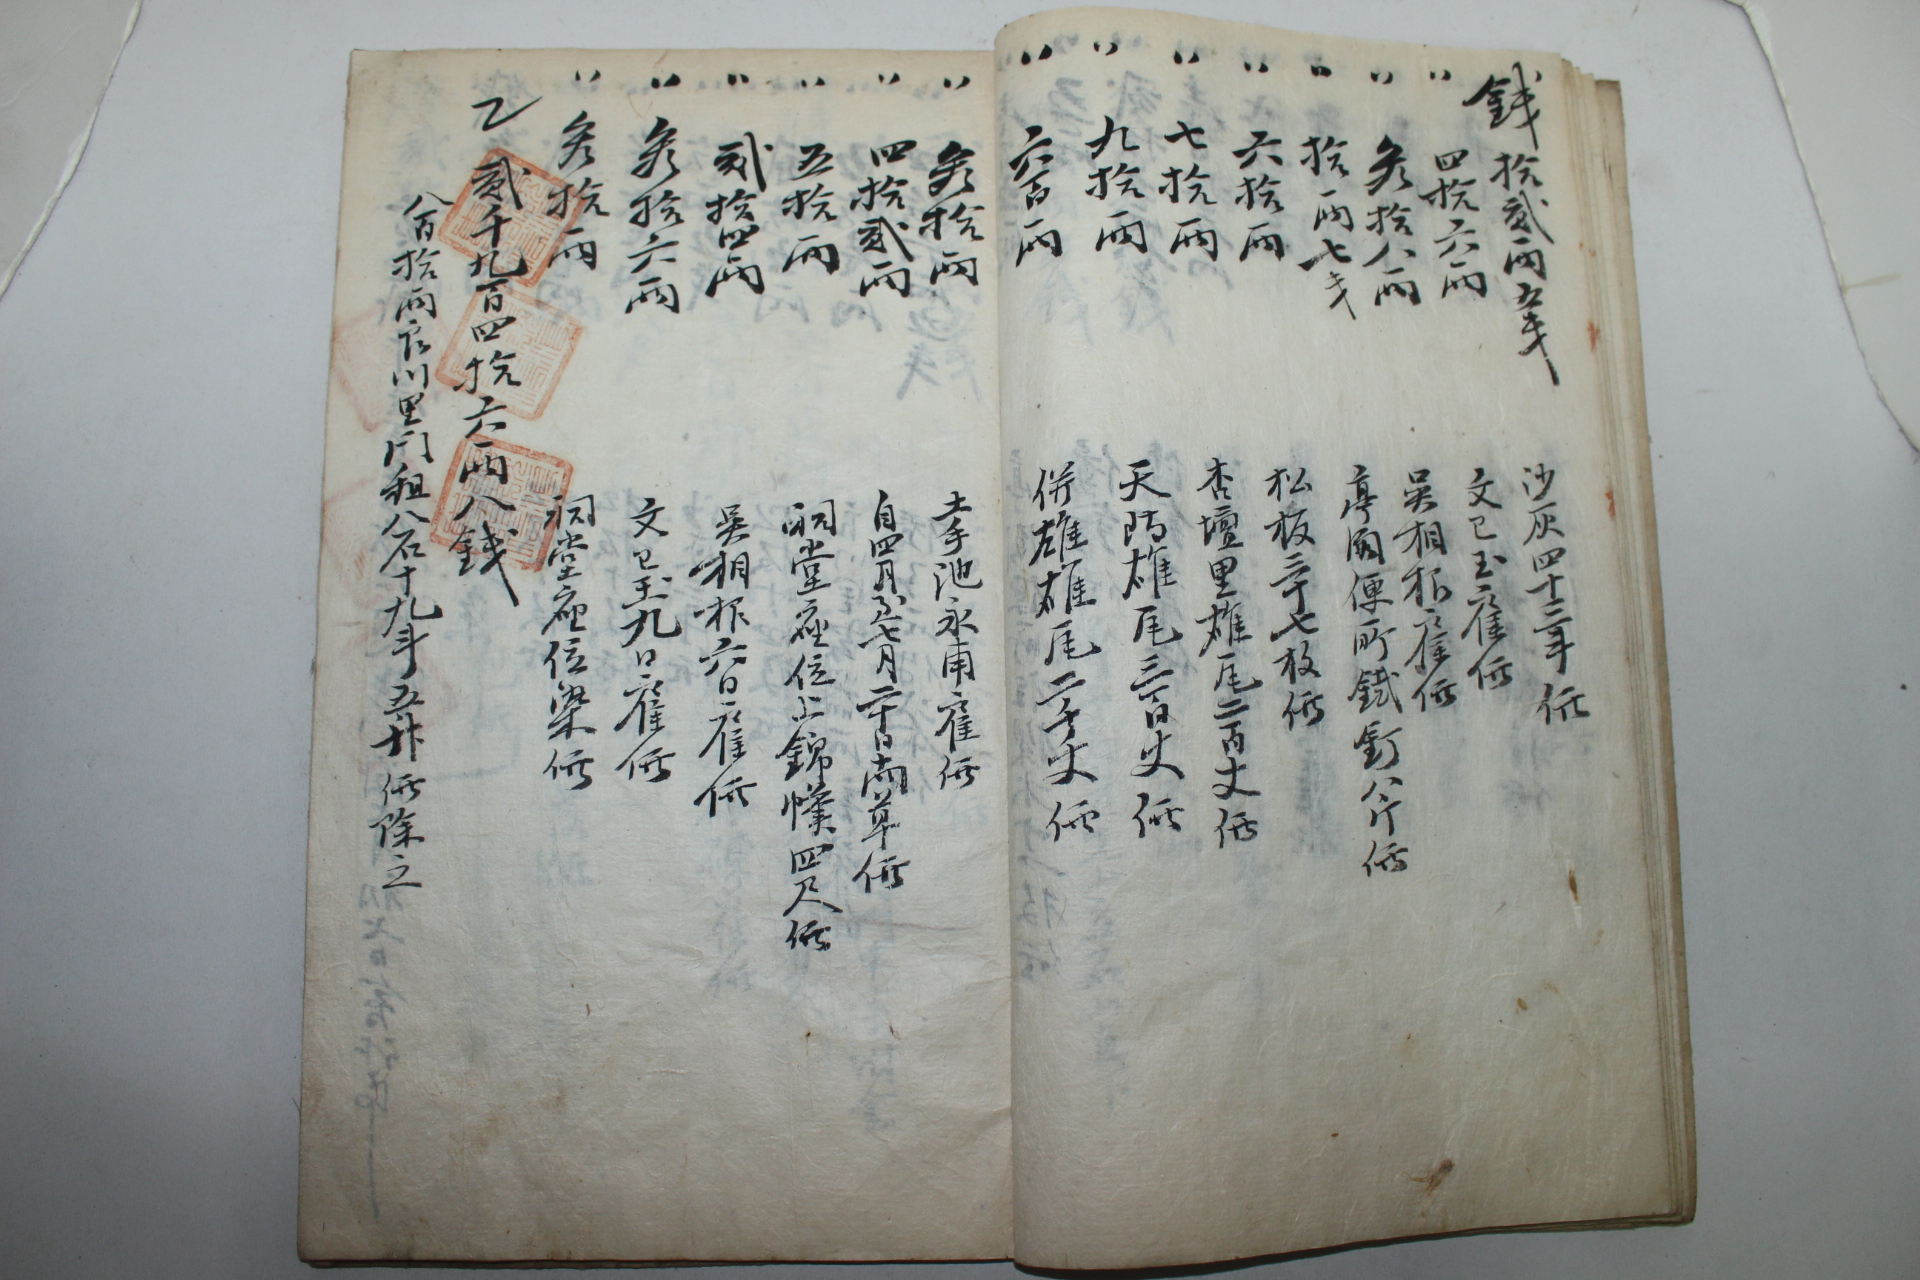 錢拾貳兩五戔 沙灰四十二年価
〃四拾六兩 文己玉雇価
〃叄拾八兩 吳相根雇価
〃拾兩七戔 亭閣便所鐵釘八斤価
〃六拾兩 松板三十七枚価
〃七拾兩 杏壇里雄尾二百丈価
〃九拾兩 天防雄尾三百丈価
〃六百兩 併雄雄尾二千丈価
〃叄拾兩 土手池永甫雇価
〃四拾貳兩 自四月至七月二十日南草価
〃五拾兩 祠堂座位上錦幞四尺価
〃貳拾四兩 吳相根六日雇価
〃叄拾六兩 文己玉九日雇価
〃叄拾兩 祠堂座位梁価
乙 貳千九百四拾六兩八錢
八百拾兩 川里門租八石十九斗五升価除之